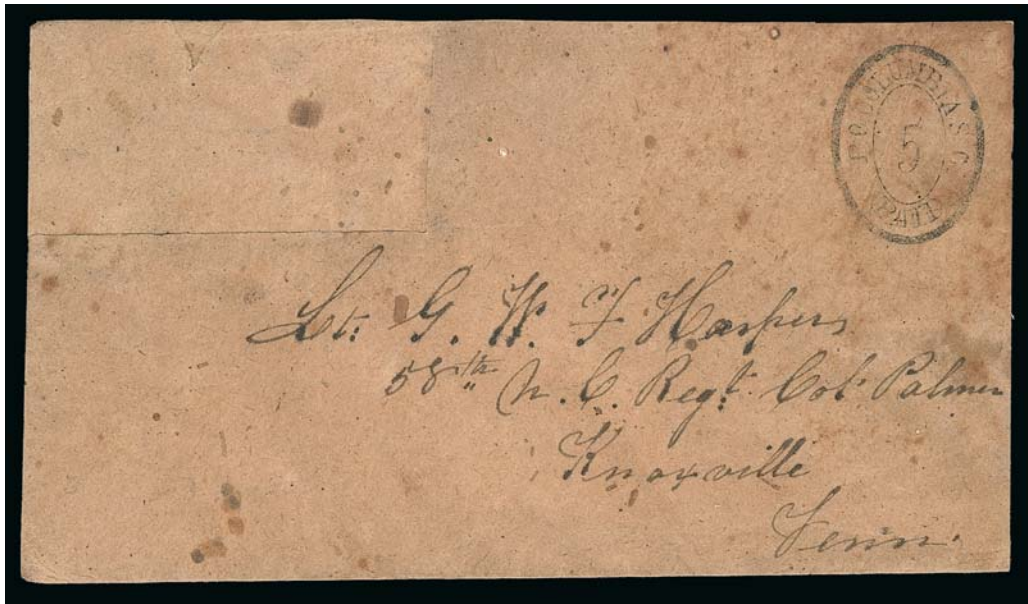 P.O. COLUMBIA. S.C.
5
PAID
Lt. G. W. F Harpers
58th N. C. Regt. Col Palmer
Knoxville
Tenn.